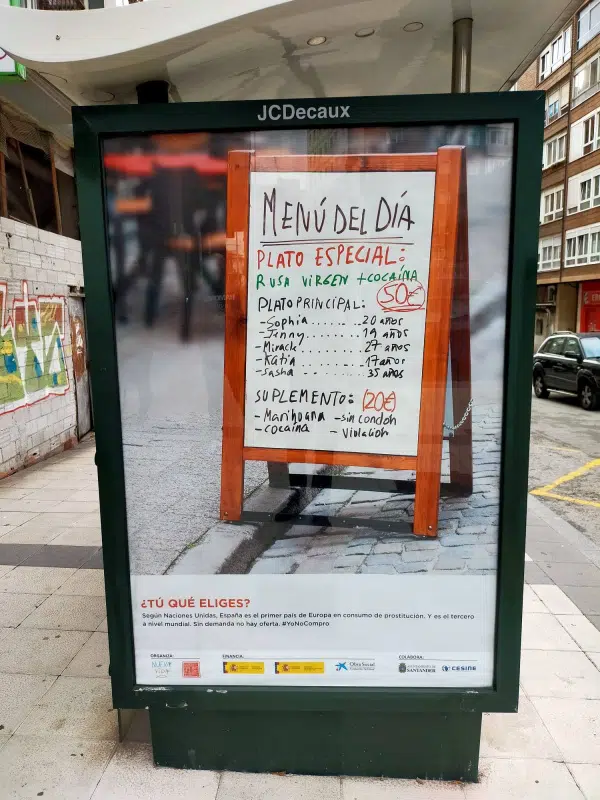 JCDecaux
MENÚ DEL DÍA
PLATO ESPECIAL:
RUSA VIRGEN + COCAÍNA
50€
PLATO PRINCIPAL:
- Sophia ........ 20 años
- Jenny ........ 19 años
- Miracle ........ 27 años
- Katia ........ 17 años
- Sasha ........ 35 años
SUPLEMENTO: 120€
- Marihuana - sin condon
- cocaína - violación
¿TÚ QUÉ ELIGES?
Según Naciones Unidas, España es el primer país de Europa en consumo de prostitución. Y es el tercero
a nivel mundial. Sin demanda no hay oferta. #YoNoCompro
ORGANIZA: FINANCIA: COLABORA:
NUEVA VIDA
Obra Social
SANTANDER
CESINE